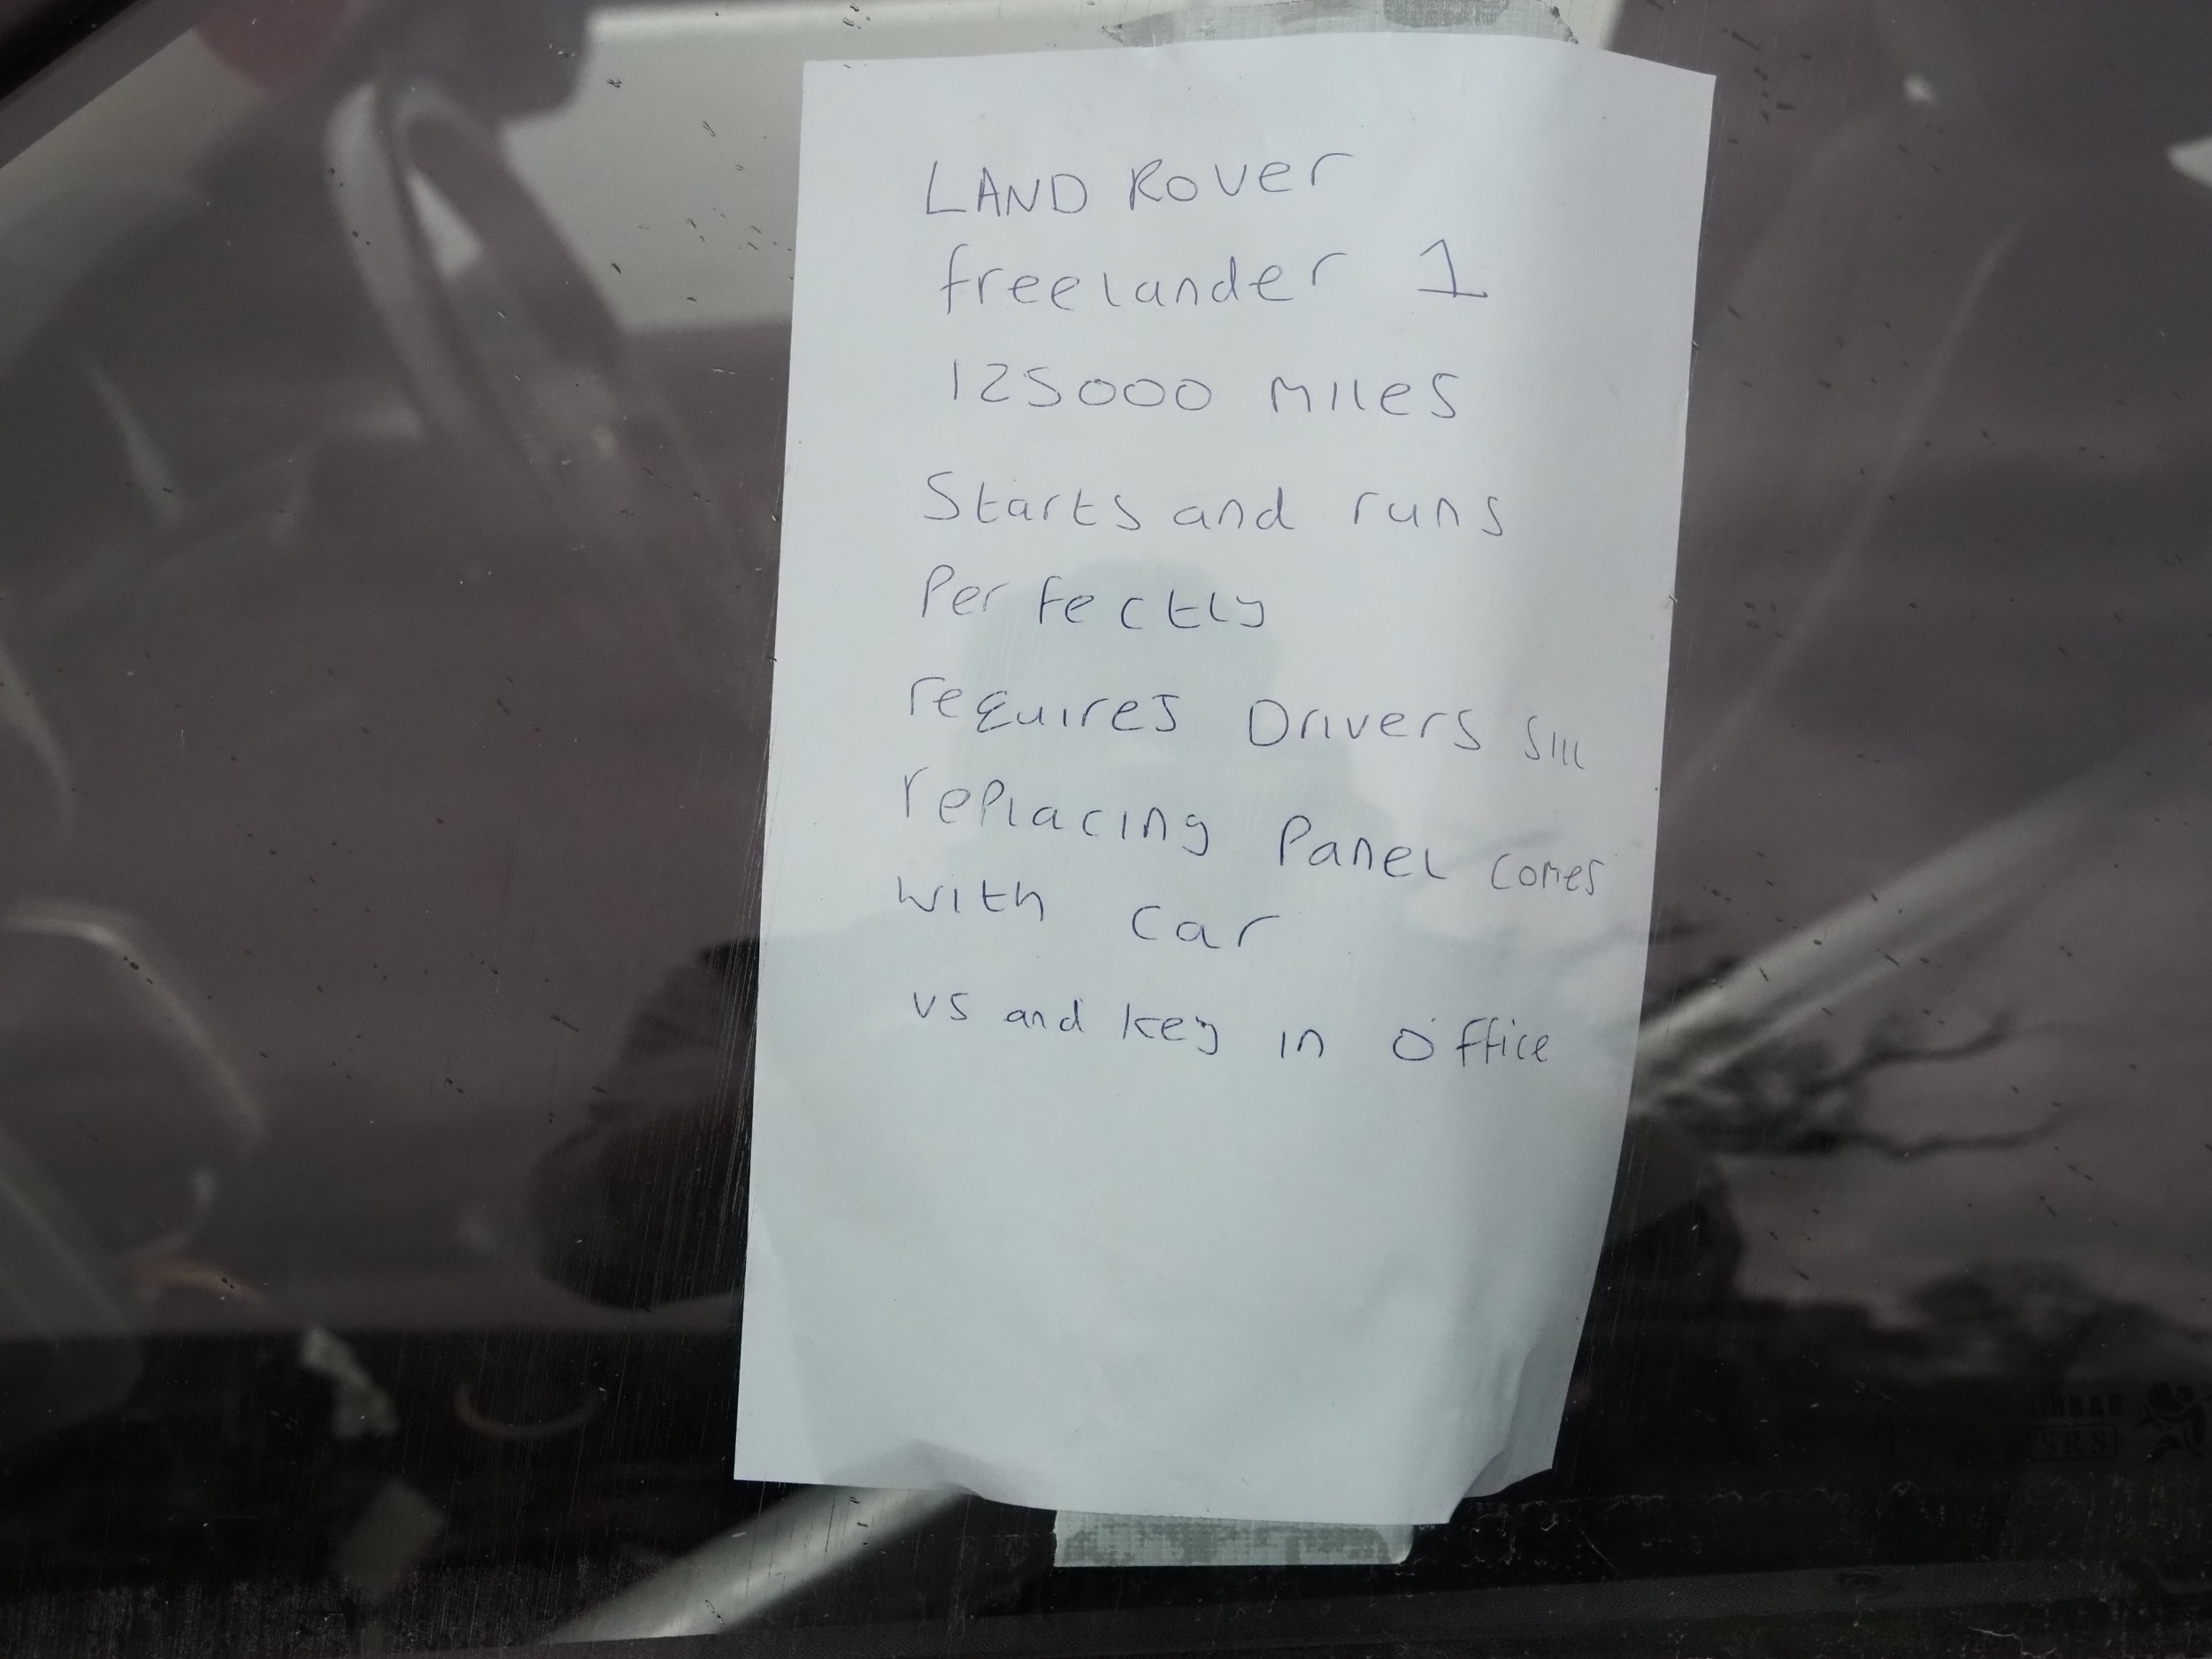 LAND Rover
freelander 1
125000 miles
Starts and runs
Perfectly
requires Drivers sill
replacing Panel comes
with car
V5 and key in office
AIRBAG
SRS